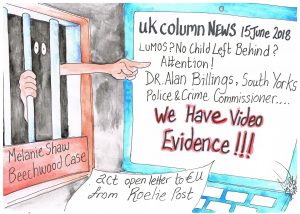 uk column NEWS 15 June 2018
LUMOS? No Child Left Behind?
Attention!
DR. Alan Billings, South Yorks
Police & Crime Commissioner....
We Have Video
Evidence !!!
Melanie Shaw
Beechwood Case
act open letter to €U
from Roelie Post